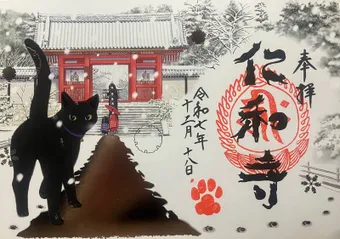 奉拝
仁和寺
令和七年
十二月十八日